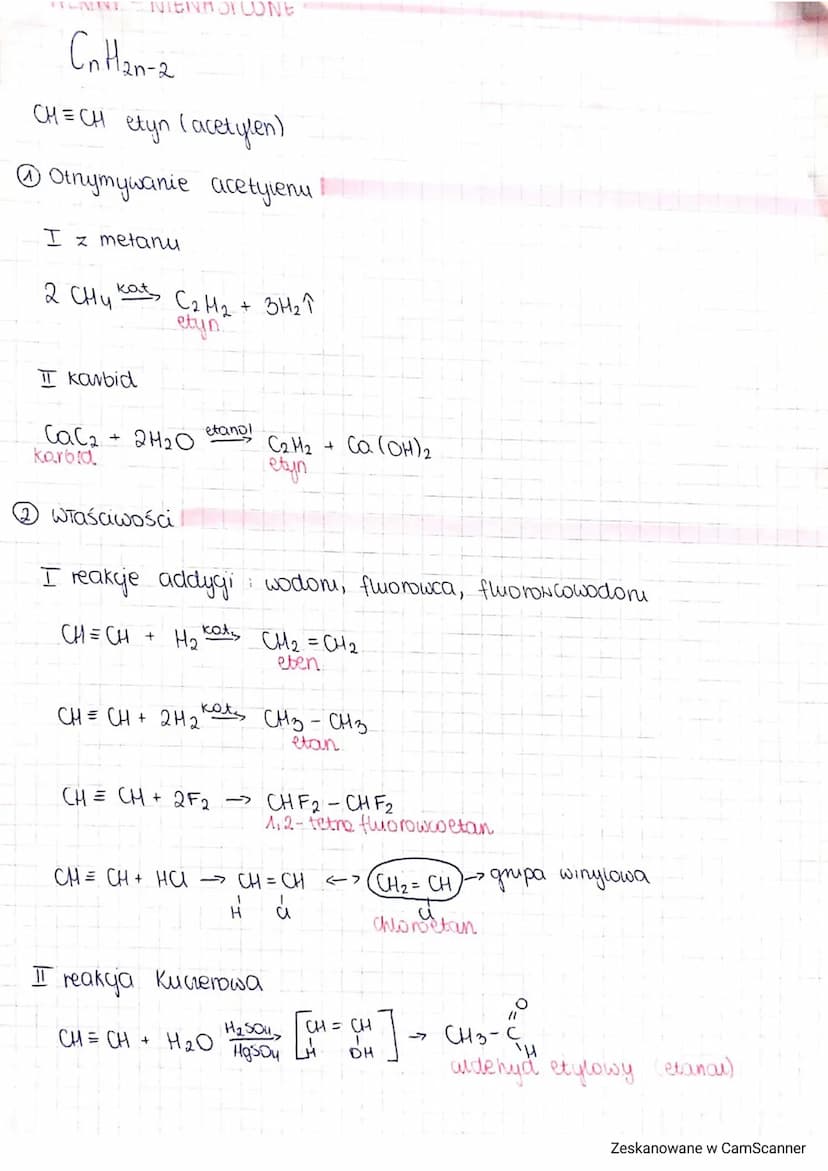 - NIENASYCONE
CnH2n-2
CH≡CH etyn (acetylen)
① Otrzymywanie acetylenu
I z metanu
2 CH4 kat.→ C2H2 + 3H2↑
etyn
II karbid
CaC2 + 2H2O etanol→ C2H2 + Ca(OH)2
karbid etyn
② właściwości
I reakcje addycji : wodoru, fluorowca, fluorowcowodoru
CH≡CH + H2 kat.→ CH2=CH2
eten
CH≡CH + 2H2 kat.→ CH3-CH3
etan
CH≡CH + 2F2 → CHF2-CHF2
1,2-tetra fluorowcoetan
CH≡CH + HCl → CH=CH ↔ CH2=CH → grupa winylowa
H Cl Cl
chloroetan
II reakcja Kucerowa
CH≡CH + H2O H2SO4→ HgSO4 [CH=CH H OH] → CH3-C =O -H
aldehyd etylowy (etanal)
Zeskanowane w CamScanner